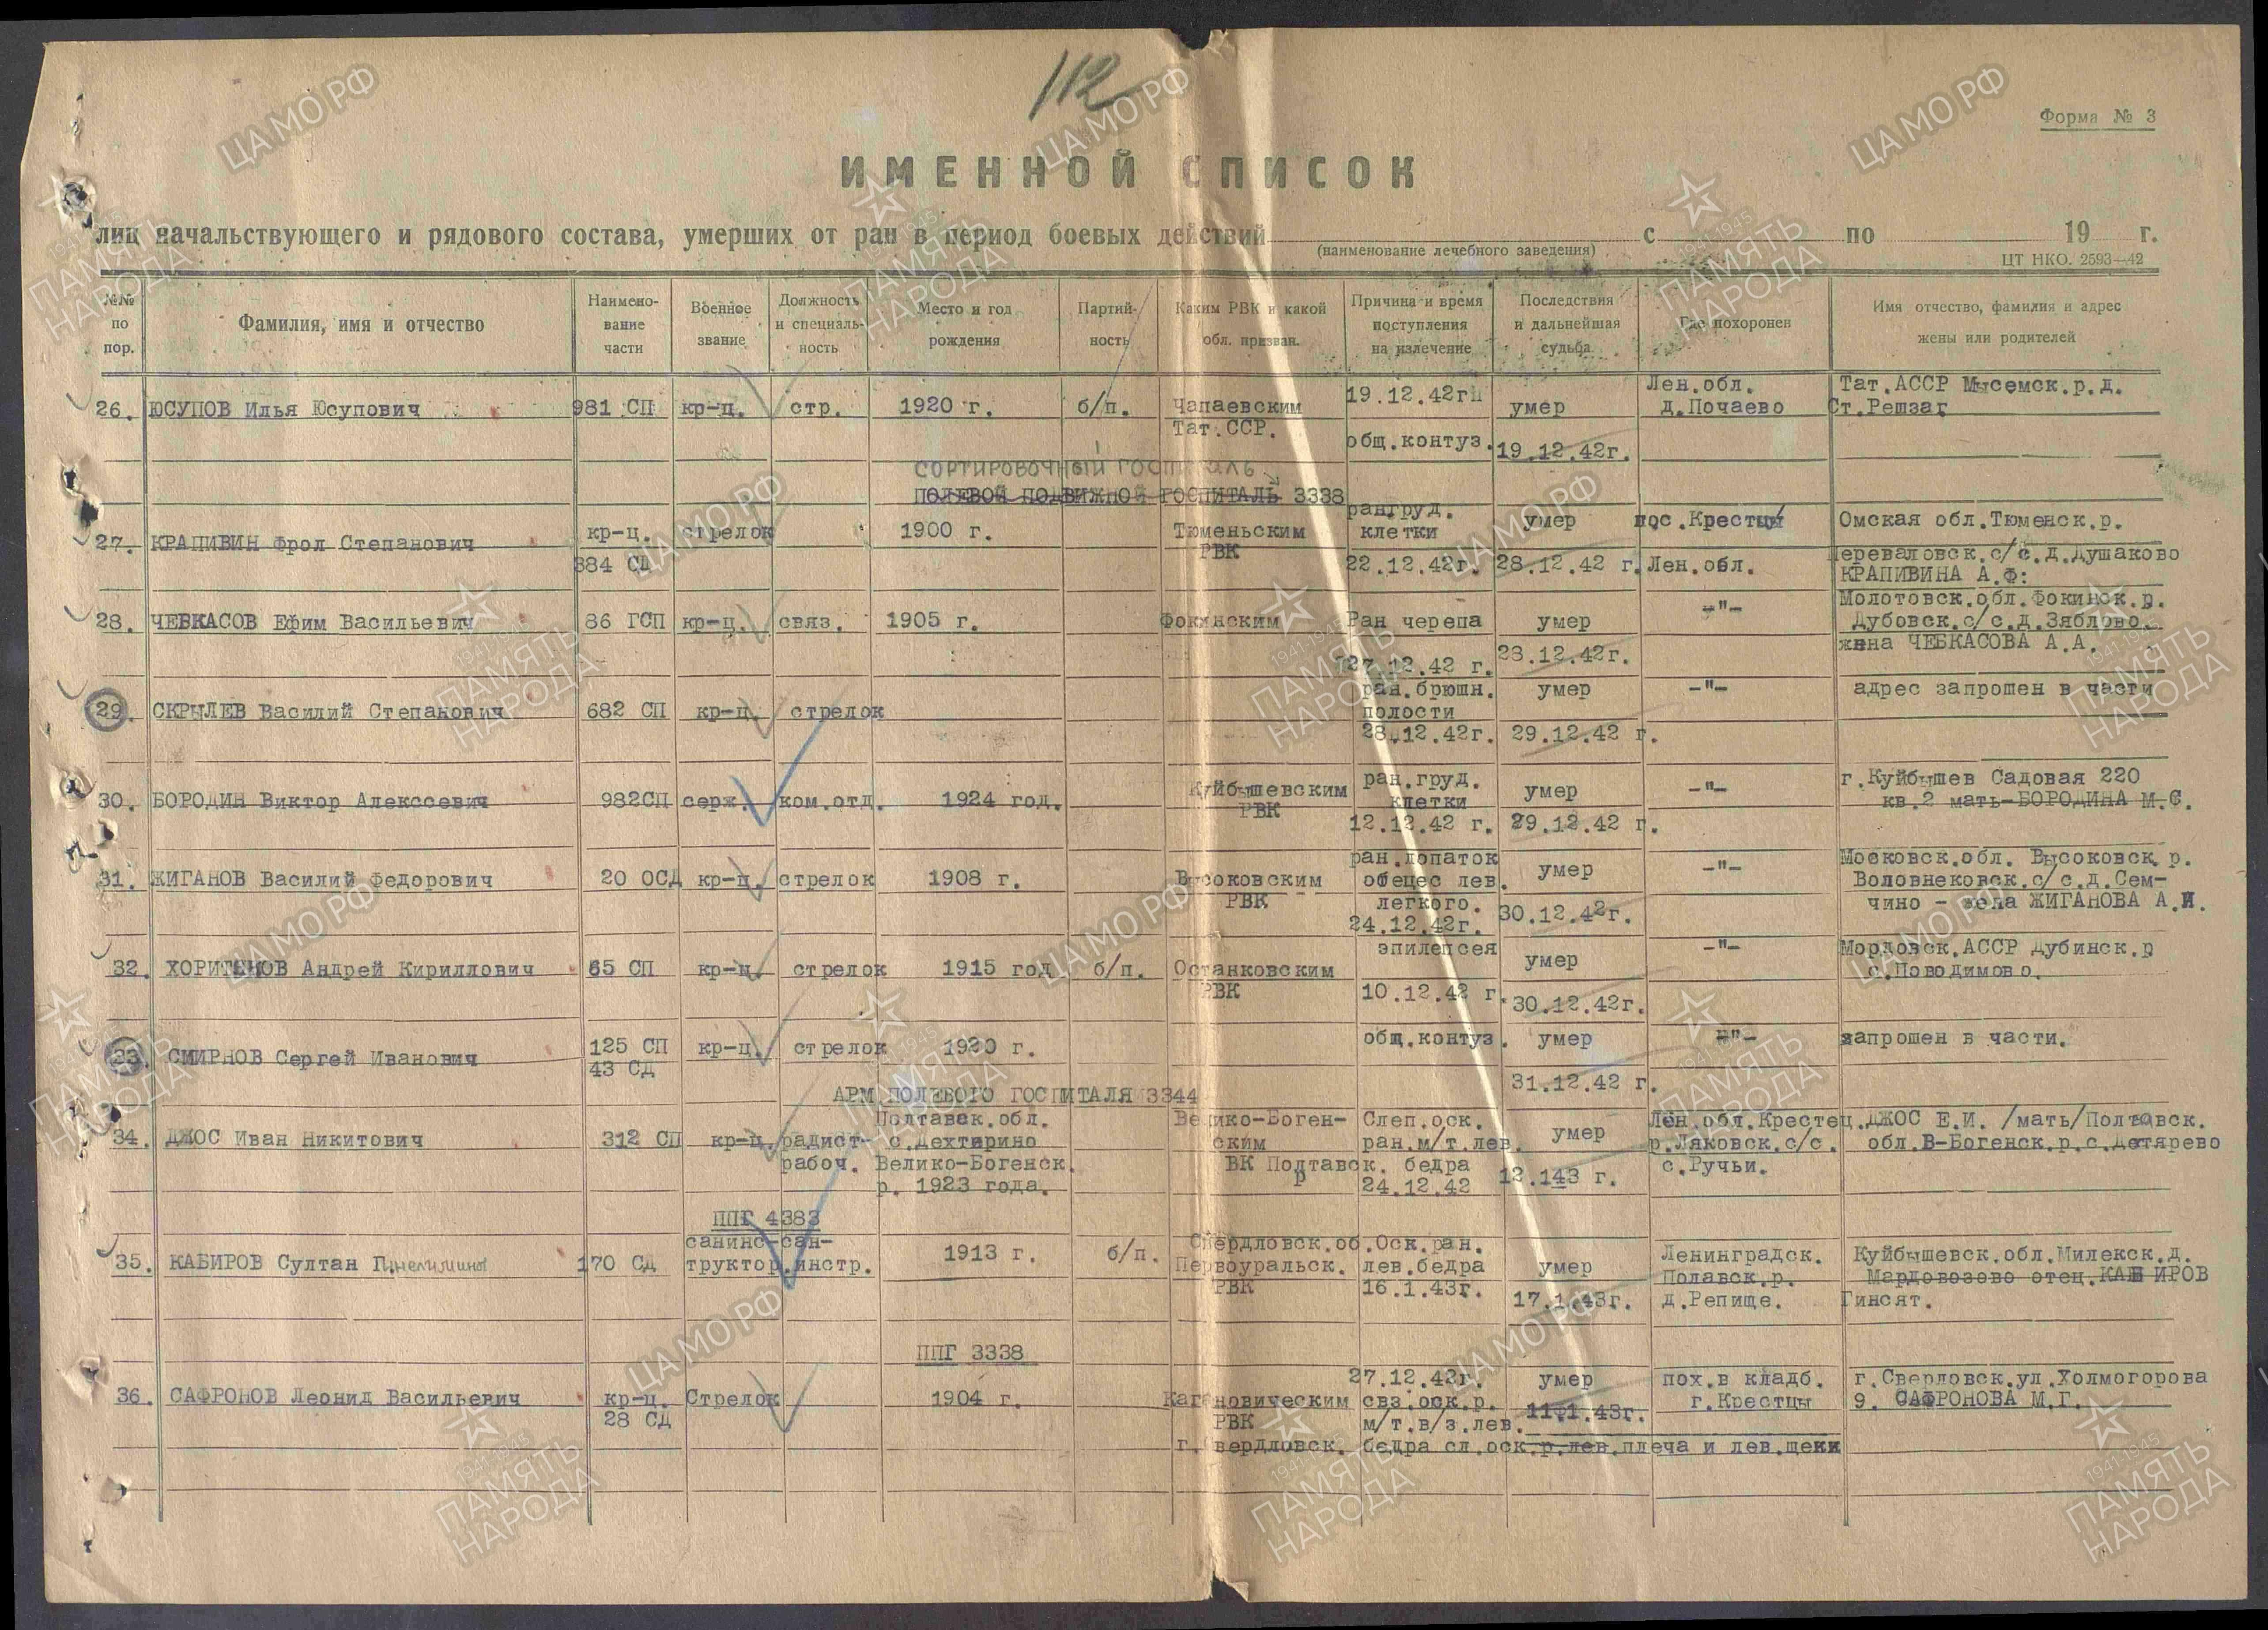 112
Форма № 3
ИМЕННОЙ СПИСОК
лиц начальствующего и рядового состава, умерших от ран в период боевых действий с по 19 г.
(наименование лечебного заведения)
ЦТ НКО. 2593—42
№№ по пор. Фамилия, имя и отчество Наимено- вание части Военное звание Должность и специаль- ность Место и год рождения Партий- ность Каким РВК и какой обл. призван. Причина и время поступления на излечение Последствия и дальнейшая судьба Где похоронен Имя отчество, фамилия и адрес жены или родителей
26. ЮСУПОВ Илья Юсупович 981 СП кр-ц. стр. 1920 г. б/п. Чапаевским Тат.ССР. 19.12.42г общ.контуз. умер 19.12.42г. Лен.обл. д.Почаево Тат.АССР Мысемск.р.д. Ст.Решзаг
СОРТИРОВОЧНЫЙ ГОСПИТАЛЬ
ПОЛЕВОЙ ПОДВИЖНОЙ ГОСПИТАЛЬ 3338
27. КРАПИВИН Фрол Степанович кр-ц. 384 СД стрелок 1900 г. Тюменьским РВК ран.груд. клетки 22.12.42г. умер 28.12.42 г. пос.Крестцы Лен.обл. Омская обл.Тюменск.р. Переваловск.с/с.д.Душаково КРАПИВИНА А.Ф:
28. ЧЕБКАСОВ Ефим Васильевич 86 ГСП кр-ц. связ. 1905 г. Фокинским Ран черепа 27.12.42 г. умер 28.12.42г. -"- Молотовск.обл.Фокинск.р. Дубовск.с/с.д.Зяблово. жена ЧЕБКАСОВА А.А.
29. СКРЫЛЕВ Василий Степанович 682 СП кр-ц. стрелок ран.брюшн. полости 28.12.42г. умер 29.12.42 г. -"- адрес запрошен в части
30. БОРОДИН Виктор Алексеевич 982СП серж. ком.отд. 1924 год. Куйбышевским РВК ран.груд. клетки 12.12.42 г. умер 29.12.42 г. -"- г.Куйбышев Садовая 220 кв.2 мать-БОРОДИНА М.С.
31. ЖИГАНОВ Василий Федорович 20 ОСД кр-ц. стрелок 1908 г. Высоковским РВК ран.лопаток обецес лев. легкого. 24.12.42г. умер 30.12.42г. -"- Московск.обл. Высоковск.р. Воловнековск.с/с.д.Сем- чино - жена ЖИГАНОВА А.И.
32. ХОРИТЕНОВ Андрей Кириллович 65 СП кр-ц. стрелок 1915 год б/п. Останковским РВК эпилепсея 10.12.42 г. умер 30.12.42г. -"- Мордовск.АССР Дубинск.р с.Поводимово.
33. СМИРНОВ Сергей Иванович 125 СП 43 СД кр-ц. стрелок 1920 г. общ.контуз. умер 31.12.42 г. -"- запрошен в части.
АРМ ПОЛЕВОГО ГОСПИТАЛЯ 3344
34. ДЖОС Иван Никитович 312 СП кр-ц. радист- рабоч. Полтавск.обл. с.Дехтярино Велико-Богенск. р. 1923 года. Велико-Боген- ским РВК Полтавск. Слеп.оск. ран.м/т.лев. бедра 24.12.42 умер 12.143 г. Лен.обл.Крестец. р.Ляковск.с/с. с.Ручьи. ДЖОС Е.И. /мать/Полтавск. обл.В-Богенск.р.с.Детярево
ППГ 4383
35. КАБИРОВ Султан 170 СД санинс- труктор. сан- инстр. 1913 г. б/п. Свердловск.об. Первоуральск. РВК Оск.ран. лев.бедра 16.1.43г. умер 17.1.43г. Ленинградск. Полавск.р. д.Репище. Куйбышевск.обл.Милекск.д. Мардовозово отец.КАБИРОВ Гинсят.
ППГ 3338
36. САФРОНОВ Леонид Васильевич кр-ц. 28 СД Стрелок 1904 г. Кагановическим РВК г.Свердловск. 27.12.42г. свз.оск.р. м/т.в/з.лев. бедра сл.оск.р.лев.плеча и лев.щеки умер 11.1.43г. пох.в кладб. г.Крестцы г.Свердловск.ул.Холмогорова 9. САФРОНОВА М.Г.
ЦАМО.РФ
ПАМЯТЬ НАРОДА
1941-1945